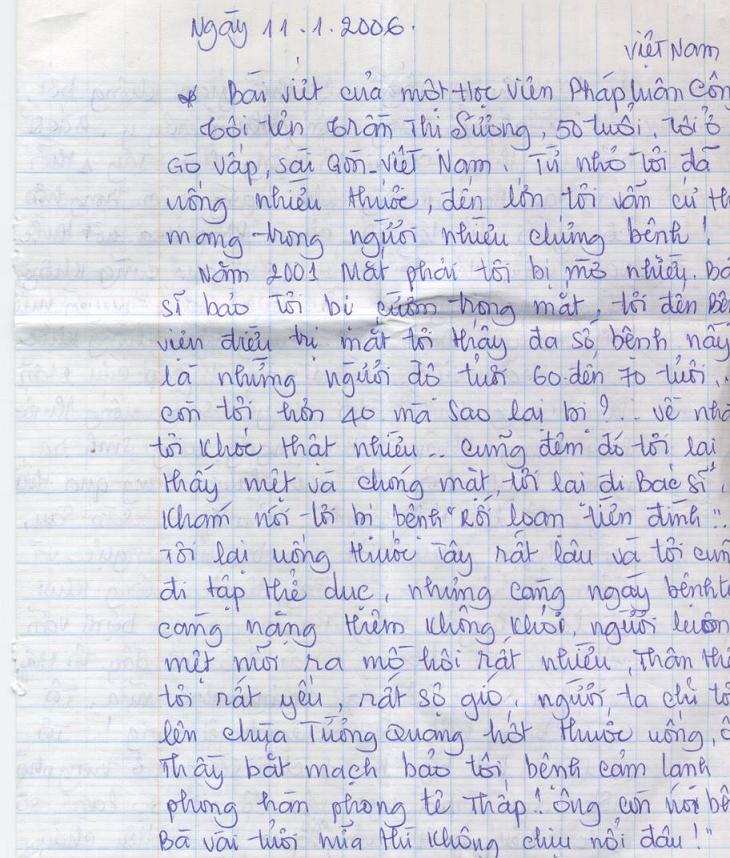 Ngày 11.1.2006.
Việt Nam
* Bài viết của một Học Viên Pháp Luân Côn
Tôi tên Trần Thị Sương, 50 tuổi, tôi ở
Gò Vấp, Sài Gòn - Việt Nam. Từ nhỏ tôi đã
uống nhiều thuốc, đến lớn tôi vẫn cứ th
mang trong người nhiều chứng bệnh!
Năm 2001 Mắt phải tôi bị mờ nhiều. Bá
sĩ bảo tôi bị cườm trong mắt, tôi đến Bện
viện điều trị mắt tôi thấy đa số bệnh nầy
là những người độ tuổi 60 đến 70 tuổi..
còn tôi hơn 40 mà sao lại bị?.. về nhà
tôi khóc thật nhiều.. cũng đêm đó tôi lại
thấy mệt và chóng mặt, tôi lại đi Bác sĩ.
Khám nói tôi bị bệnh "Rối loạn tiền đình"..
Tôi lại uống thuốc Tây rất lâu và tôi cũn
đi tập thể dục, nhưng càng ngày bệnh t
càng nặng thêm không khỏi, người luôn
mệt mỏi ra mồ hôi rất nhiều, Thân thể
tôi rất yếu, rất sợ gió, người ta chỉ tô
lên chùa Tường Quang hốt thuốc uống, ô
Thầy bắt mạch bảo tôi bệnh cảm lạnh
phong hàn phong tê Thấp! ông còn nói bện
Bà vài tuổi nữa thì không chịu nổi đâu!"